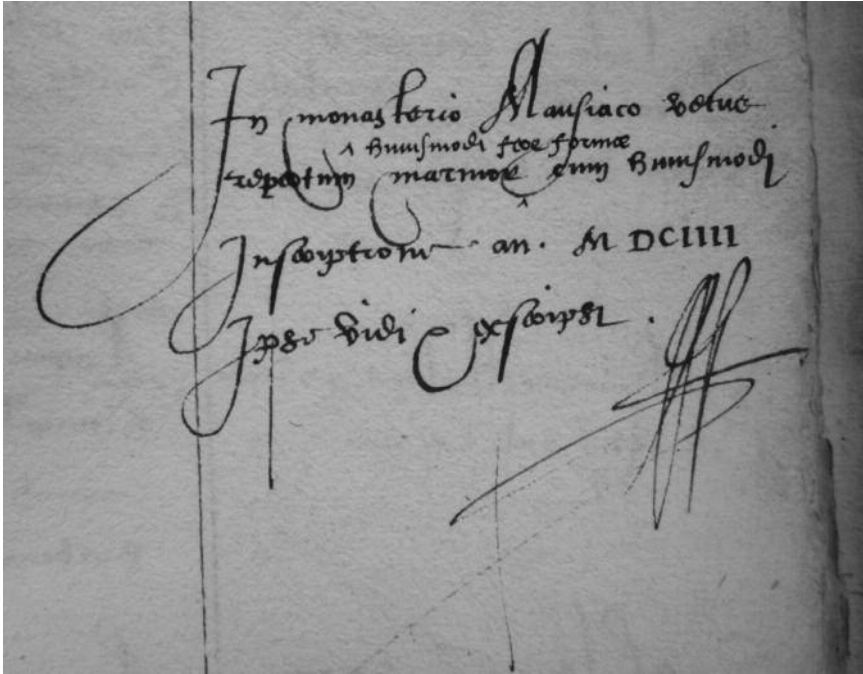 In monasterio Mausiaco vetus
^ huiusmodi fere formæ
repertum marmor cum huiusmodi
^
Inscriptione an. M DCIIII
Ipse vidi & exscripsi.